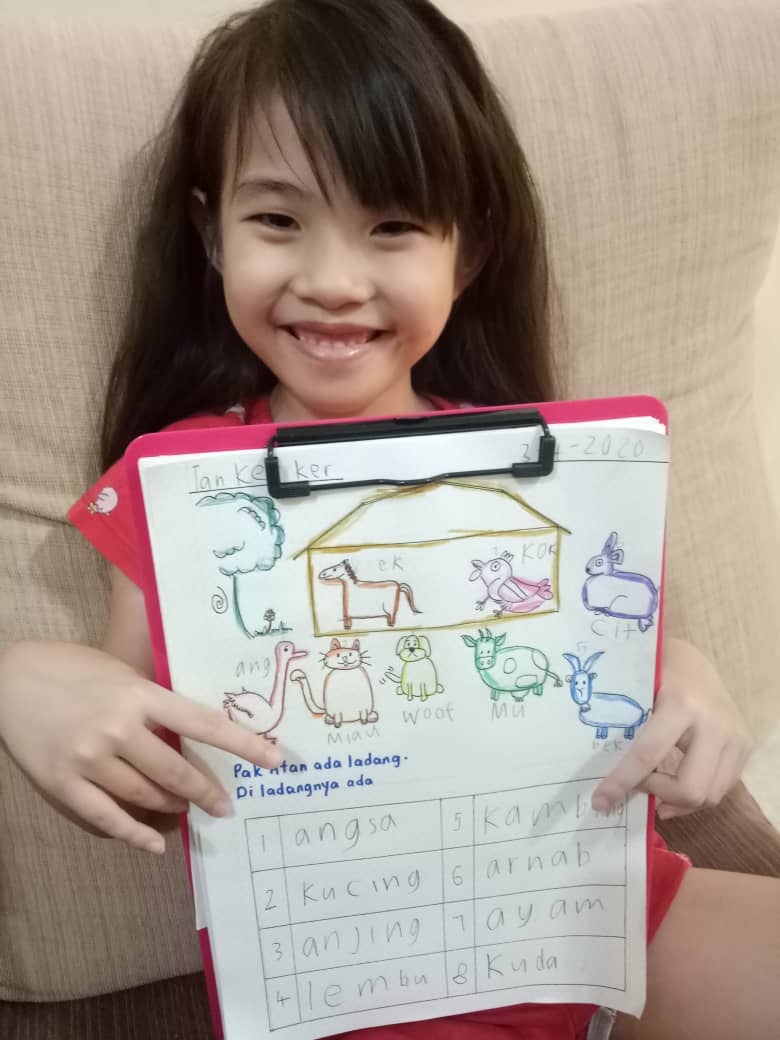 Tan Ke ker
-2020
ek
KOK
Cit
ang
Miau
woof
Mu
bek
Pak ntan ada ladang.
Di ladangnya ada
1 angsa 5 Kambing
2 Kucing 6 arnab
3 anjing 7 ayam
4 lembu 8 Kuda